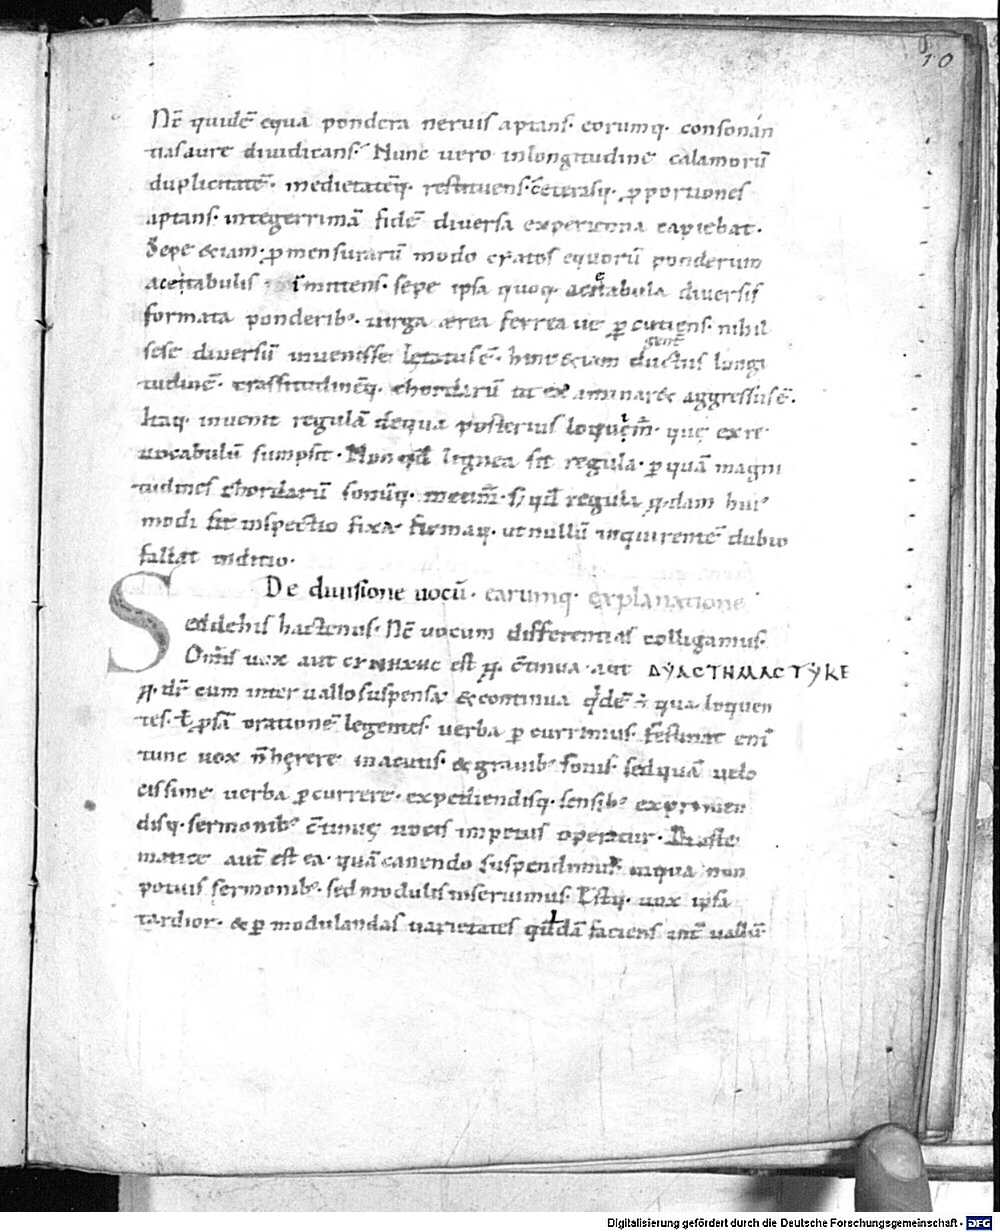 10
Nc̄ quidē equa pondera neruis aptans· eorumq· consonan
tias aure diiudicans· Nunc uero in longitudine calamorū
duplicitatē· medietatēq· restituens· c̄eterasq· ꝓportiones
aptans· integerrimā fidē diuersa experientia capiebat·
Sepe &iam· ꝓ mensurarū modo cyatos equorū ponderum
acetabulis īmittens· sepe ipsa quoq· acetabula diuersis
formata ponderib᾽· uirga ærea ferrea ue ꝑcutiens· nihil
sese diuersū inuenisse lętatus ē· hinc &iam ductus longi
tudinē· crassitudinēq· chordarū ut examinar& aggressus ē·
Itaq· inuenit regulā de qua posterius loquem̄· quę ex re
uocabulū sumpsit· Non qđ lignea sit regula· ꝑ quā magni
tudines chordarū sonūq· metim̄· s; qđ regula q·dam hui᾽
modi sit inspectio fixa firmaq· ut nullū inquirentē dubio
fallat inditio·
De diuisione uocū· earumq· explanatione·
Sed de his hactenus· Nc̄ uocum differentias colligamus·
Om̄is uox aut CYNHXHC est q· c̄tinua· aut ΔΥΑCTHMACTYKE
q· dr̄ cum interuallo suspensa· & continua qͥdē ē qua loquen
tes· ł ꝓsā orationē legentes· uerba ꝑcurrimus· Festinat enī
tunc uox n̄ hęrere in acutis· & grauib᾽ sonis· sed quā uelo
cissime uerba ꝑcurrere· expediendisq· sensib᾽ exprimen
disq· sermonib᾽ c̄tinuę uocis impetus operatur· Diaste
matice aut̄ est ea· quā canendo suspendimus· in qua non
potius sermonib᾽· sed modulis inseruimus· Estq· uox ipsa
tardior· & ꝑ modulandas uarietates qđdā faciens int̄uallū·
Digitalisierung gefördert durch die Deutsche Forschungsgemeinschaft - DFG